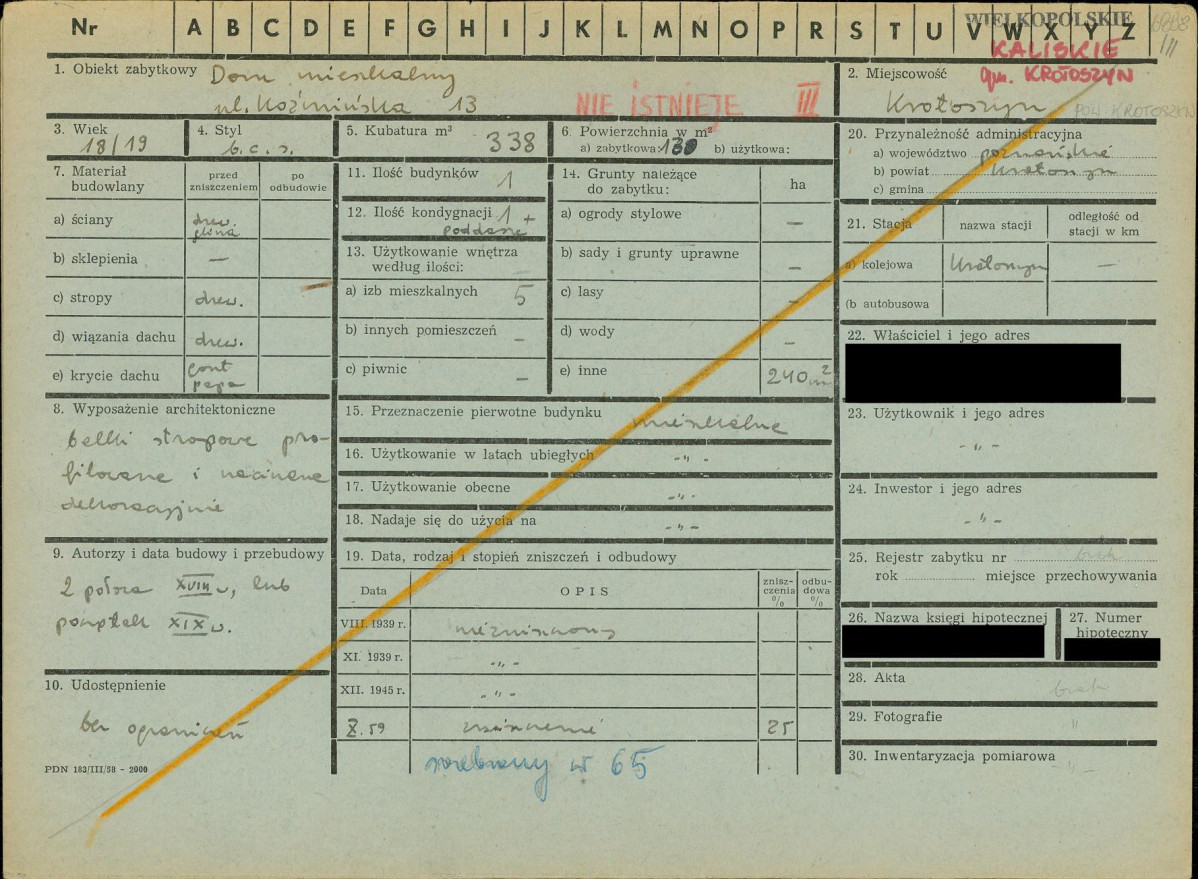 Nr A B C D E F G H I J K L M N O P R S T U V W X Y Z
WIELKOPOLSKIE
KALISKIE
gm. KROTOSZYN
1. Obiekt zabytkowy Dom mieszkalny
ul. Koźmińska 13
NIE ISTNIEJE III
2. Miejscowość
Krotoszyn POW. KROTOSZYN
3. Wiek
18/19
4. Styl
b. c. s.
5. Kubatura m³ 338
6. Powierzchnia w m²
a) zabytkowa: 130 b) użytkowa:
7. Materiał budowlany
przed zniszczeniem
po odbudowie
a) ściany drew. glina
b) sklepienia —
c) stropy drew.
d) wiązania dachu drew.
e) krycie dachu gont papa
8. Wyposażenie architektoniczne
belki stropowe pro-
filowane i nacinane
dekoracyjnie
9. Autorzy i data budowy i przebudowy
2 połowa XVIII w, lub
początek XIX w.
10. Udostępnienie
bez ograniczeń
PDN 183/III/58 - 2000
11. Ilość budynków 1
12. Ilość kondygnacji 1 +
poddasze
13. Użytkowanie wnętrza
według ilości:
a) izb mieszkalnych 5
b) innych pomieszczeń —
c) piwnic —
14. Grunty należące
do zabytku: ha
a) ogrody stylowe —
b) sady i grunty uprawne —
c) lasy —
d) wody —
e) inne 240 m²
15. Przeznaczenie pierwotne budynku mieszkalne
16. Użytkowanie w latach ubiegłych -"-
17. Użytkowanie obecne -"-
18. Nadaje się do użycia na -"-
19. Data, rodzaj i stopień zniszczeń i odbudowy
Data OPIS znisz-czenia % odbu-dowa %
VIII. 1939 r. niezniszczony
XI. 1939 r. -"-
XII. 1945 r. -"-
X. 59 zniszczenie 25
rozebrany w 65
20. Przynależność administracyjna
a) województwo poznańskie
b) powiat Krotoszyn
c) gmina
21. Stacja nazwa stacji odległość od stacji w km
a) kolejowa Krotoszyn —
(b autobusowa
22. Właściciel i jego adres
23. Użytkownik i jego adres
-"-
24. Inwestor i jego adres
-"-
25. Rejestr zabytku nr brak
rok miejsce przechowywania
26. Nazwa księgi hipotecznej
27. Numer hipoteczny
28. Akta brak
29. Fotografie "
30. Inwentaryzacja pomiarowa
-"-